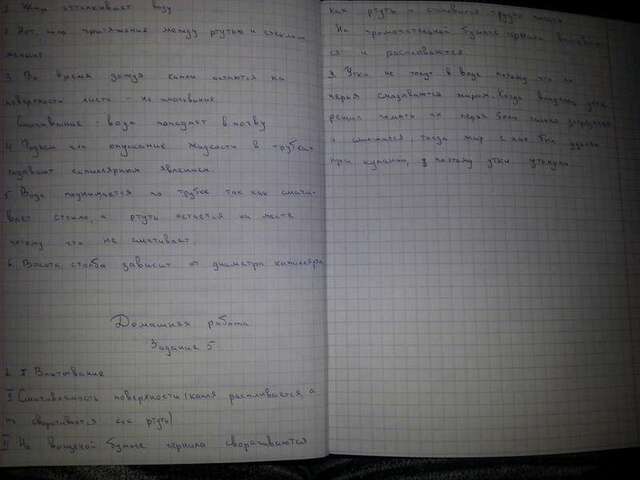 1. Жир отталкивает воду
2. Нет, или притяжение между ртутью и стеклом
меньше
3. Во время дождя капли остаются на
поверхности листа - не смачивание
Смачивание - вода попадает в почву
4. Подъем или опускание жидкости в трубках
называют капиллярным явлением.
5. Вода поднимается по трубке так как смачи-
вает стекло, а ртуть остается на месте
потому что не смачивает.
6. Высота столба зависит от диаметра капилляра
Домашняя работа
Задание 5
I Впитывание
I Смачиваемость поверхности (капля расплывается а
не сворачивается как ртуть)
II На вощеной бумаге чернила сворачиваются
как ртуть и становится трудно писать
На промокательной бумаге чернила впитывают
ся и расплываются
Утки не тонут в воде потому что их
перья смазываются жиром. Когда
решил что перья были
и, тогда жир с них был удален
при купании, поэтому утки утонули